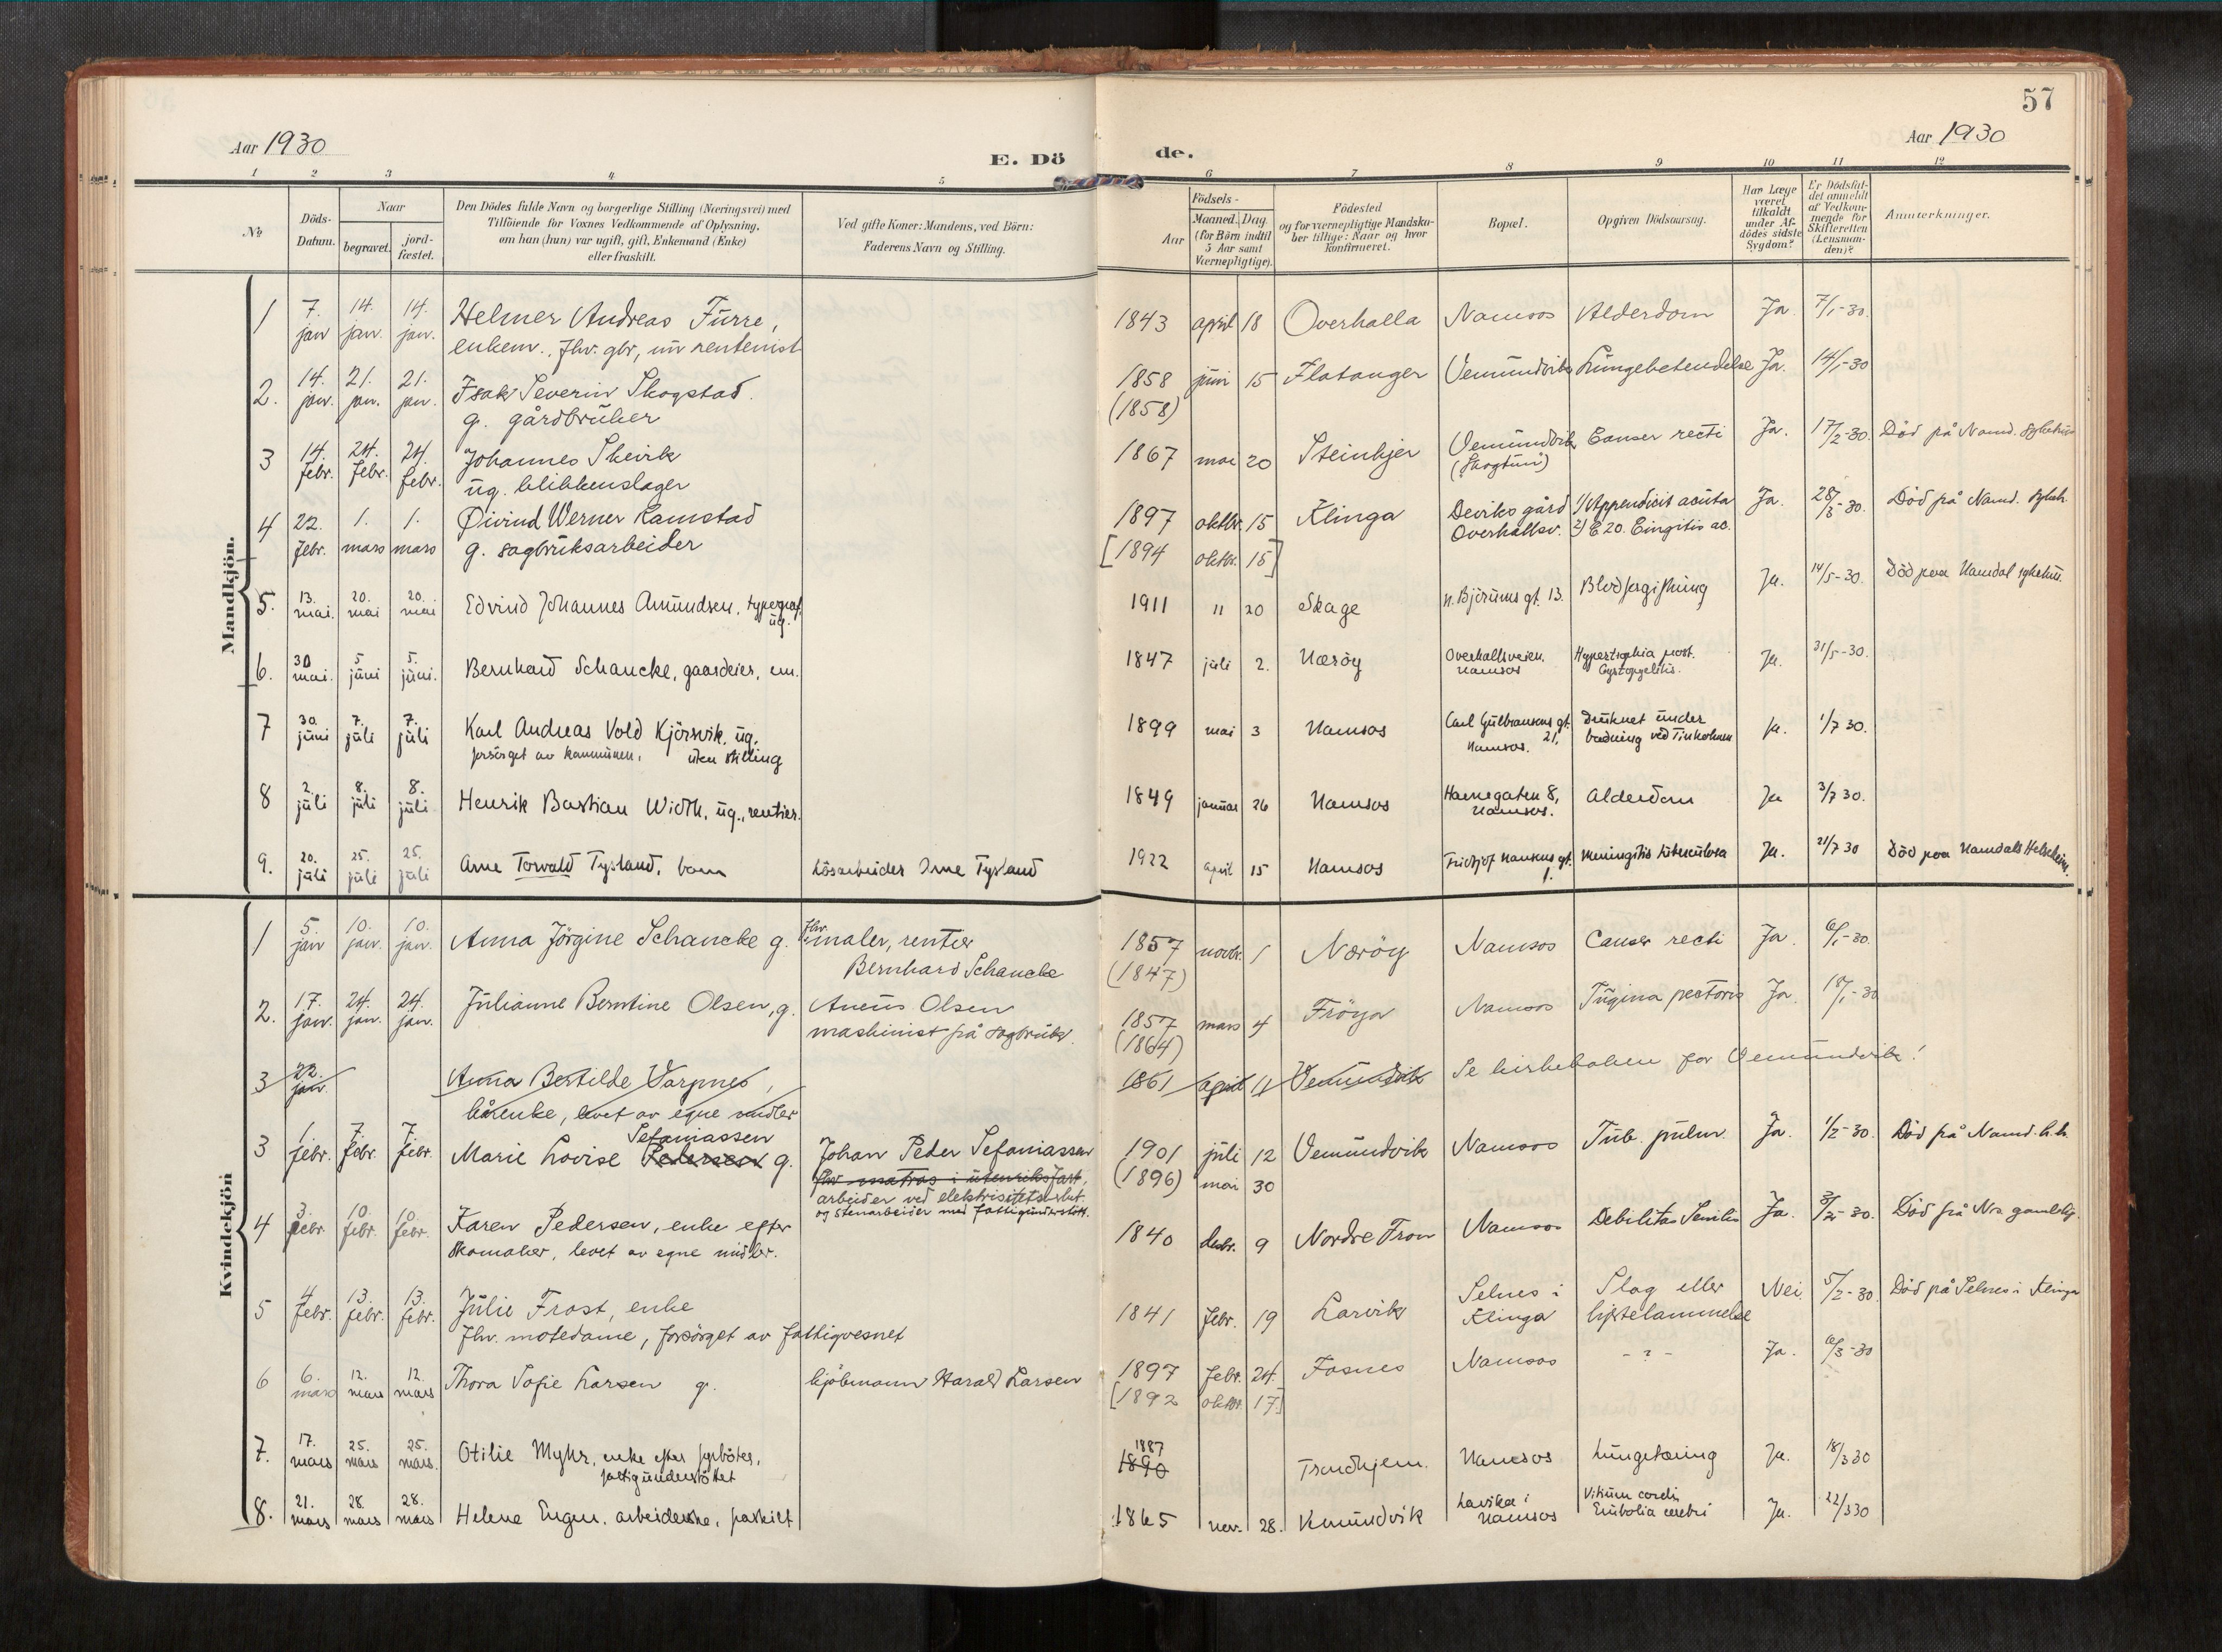 57
Aar 1930
Aar 1930
E. Dö
de.
1 2 3 4 5 6 7 8 9 10 11 12
№
Döds-Datum.
Naar
begravet.
jord-fæstet.
Den Dödes fulde Navn og borgerlige Stilling (Næringsvei) med
Tilföiende for Voxnes Vedkommende af Oplysning,
om han (hun) var ugift, gift, Enkemand (Enke)
eller fraskilt.
Ved gifte Koner: Mandens, ved Börn:
Faderens Navn og Stilling.
Aar
Födsels-
Maaned. Dag.
(for Börn indtil
5 Aar samt
Værnepligtige).
Födested
og for værnepligtige Mandska-
ber tillige: Naar og hvor
Konfirmeret.
Bopæl.
Opgiven Dödsaarsag.
Har Læge
været
tilkaldt
under Af-
dödes sidste
Sygdom?
Er Dödsfal-
det anmeldt
af Vedkom-
mende for
Skifteretten
(Lensman-
den)?
Anmerkninger.
Mandkjön.
1 7. jan 14. jan. 14. jan. Helmer Andreas Furre, 1843 april 18 Overhalla Namsos Alderdom Ja. 7/1-30.
enkem., fhv. gbr, nu rentenist
2. 14. jan. 21. jan. 21. jan. Isak Severin Skogstad. 1858 juni 15 Flatanger Vemundvik Lungebetendelse Ja. 14/1-30
g. gårdbruker (1858)
3 14. febr. 24. febr. 24. febr. Johannes Skevik 1867 mai 20 Steinkjer Vemundvik (Skogtun) Cancer recti Ja. 17/2-30. Död på Namd. sykehus
ug. blikkenslager
4 22. febr. 1. mars 1. mars Øivind Werner Ramstad 1897 oktbr. 15 Klinga Deviks gård Overhallsv. 1) Appendicit acuta Ja. 28/3-30. Död på Namd. sykeh.
g. sagbruksarbeider [1894 oktbr. 15]
5. 13. mai. 20. mai 20. mai Edvind Johannes Amundsen, typograf, ug. 1911 " 20 Skage n. Bjørums gt. 13. Blodforgiftning Ja. 14/5-30. Död paa Namdal sykehus.
6. 30 mai. 5 juni 5. juni. Bernhard Schancke, gaardeier, em. 1847 juli 2. Nærøy Overhallsveien, Namsos Hypertrophia prost. Ja. 31/5-30.
7 30. juni 7. juli 7. juli Karl Andreas Vold Kjörsvik, ug. 1899 mai 3 Namsos Carl Gulbransens gt. 21, Namsos. Druknet under badning ved Ja. 1/7 30.
forsörget av kommunen, uten stilling
8 2. juli 8. juli 8. juli Henrik Bastian Width, ug., rentier. 1849 januar 26 Namsos Havnegaten 8, Namsos. Alderdom Ja 3/7 30.
9. 20. juli 25. juli 25. juli Arne Torvald Tysland, barn Lösarbeider Arne Tysland 1922 april 15 Namsos Fridtjof Nansens gt. 1. Meningitis tuberculosa Ja. 21/7 30 Död paa Namdals Helseheim.
Kvindekjön
1 5. jan 10. jan. 10. jan. Anna Jörgine Schancke g. fhv. maler, rentier 1857 novbr. 1 Nærøy Namsos Cancer recti Ja. 6/1-30.
Bernhard Schancke (1847)
2. 17. jan. 24. jan. 24. jan. Julianne Berntine Olsen, g. Aneus Olsen 1857 mars 4 Fröya Namsos pectoris Ja. 18/1-30
maskinist på sagbruk. (1864)
3 22. jan. Anna Bertilde Varpnes, 1861 april 11 Vemundvik Se kirkeboken for Vemundvik!
kårenke, levet av egne midler
3 1 febr. 7 febr. 7 febr. Marie Lovise Pedersen Sefaniassen g. Johan Peder Sefaniassen 1901 juli 12 Vemundvik Namsos Tub. pulm. Ja. 1/2-30. Död på Namd. h.h.
fhv. matros i utenriksfart, (1896) mai 30
arbeider ved elektrisitetsverket.
og stenarbeider med fattigunderstött.
4 3. febr. 10. febr. 10. febr. Karen Pedersen, enke efter 1840 desbr. 9 Nordre Fron Namsos Debilitas Senilis Ja. 3/2-30. Död på Ns. gamlehj.
skomaker, levet av egne midler.
5 4 febr. 13. febr. 13. febr. Julie Frost, enke 1841 febr. 19 Larvik Selnes i Klinga Slag eller hjertelammelse Nei 5/2-30. Död på Selnes i Klinga
fhv. motedame, forsörget av fattigvesnet
6 6. mars 12. mars 12. mars Thora Sofie Larsen g. kjöbmann Harald Larsen 1897 febr. 24. Fosnes Namsos - ? - Ja. 6/3-30
[1892 oktbr. 17]
7. 17. mars 25. mars 25. mars. Otilie Myhr, enke efter fyrböter, 1887 1890 Trondhjem. Namsos Lungetæring Ja. 18/3 30
fattigunderstöttet
8. 21. mars 28. mars 28. mars Helene Engen, arbeiderske, fraskilt 1865 nov. 28. Vemundvik Lavika i Namsos Vitium cordis Embolia cerebri Ja. 22/3 30